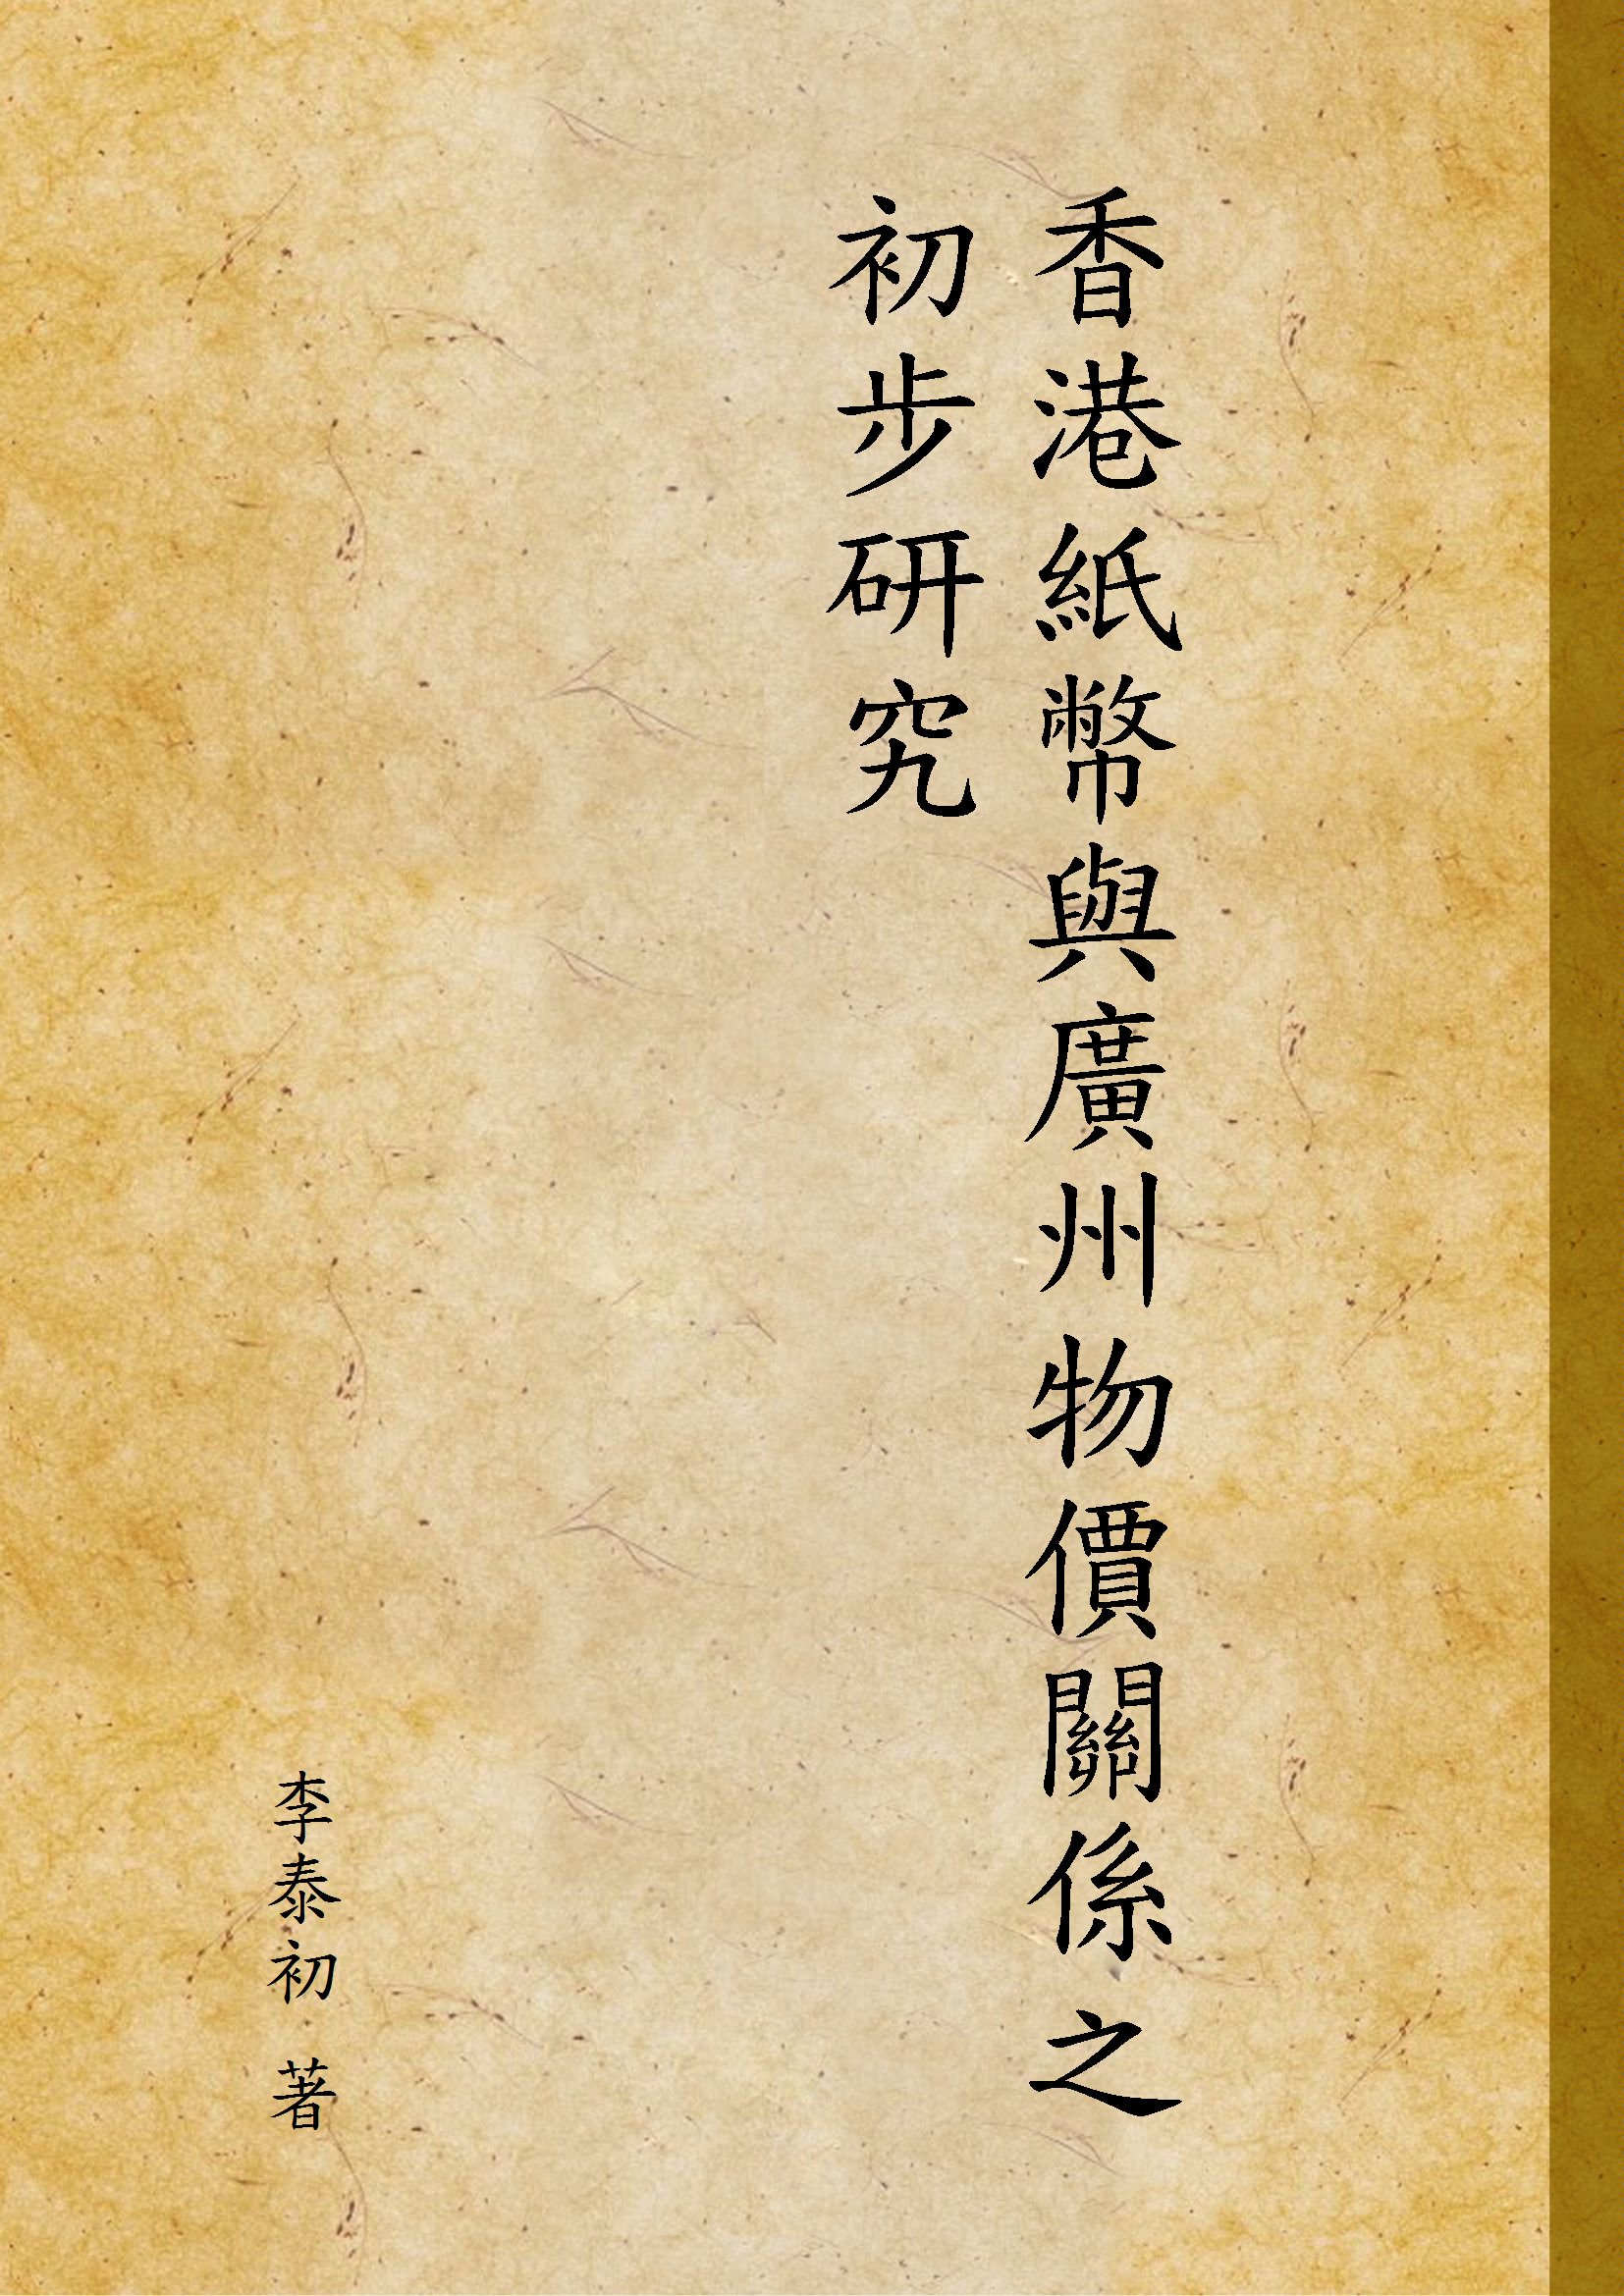 香港紙幣與廣州物價關係之
初步研究
李泰初 著